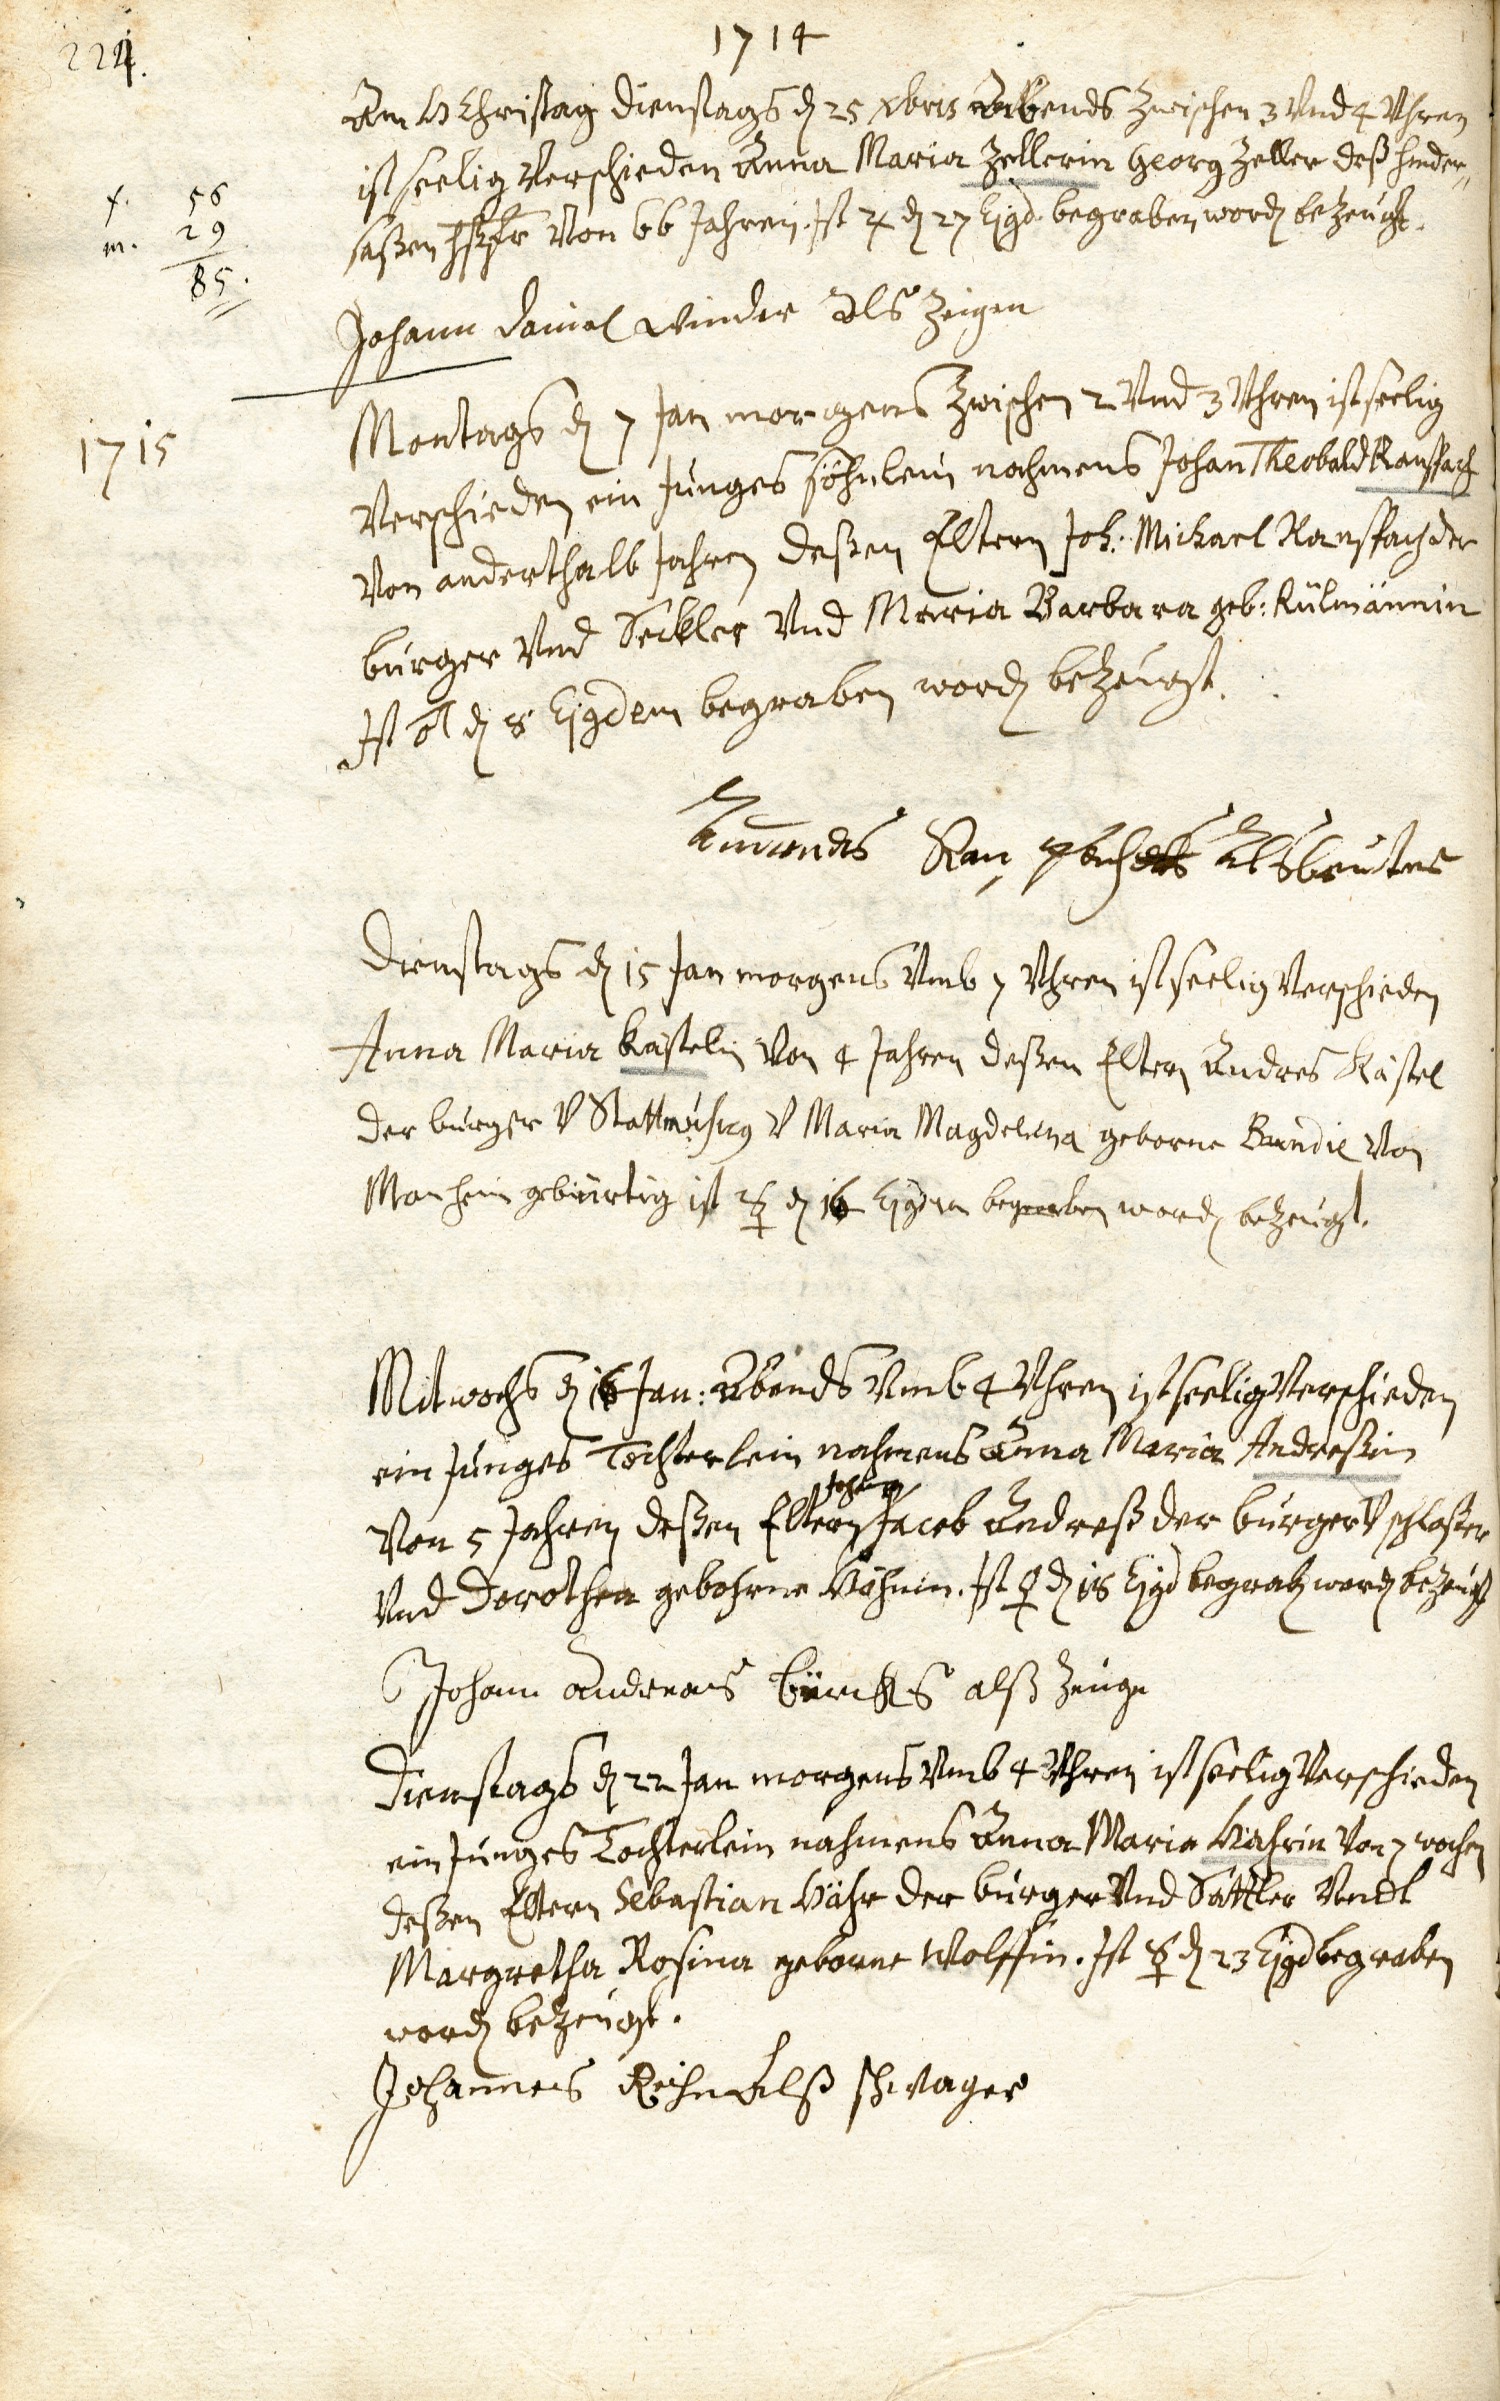 224.
1714
Am H Christag Dienstags d 25 xbris Abends Zwischen 3 Vnd 4 Vhren
ist seelig Verschieden Anna Maria Zellerin Georg Zeller deß hinder„
saßen Von 66 Jahren. Ist ♃ d 27 Ejgd. begraben word bezeugt.
f. 56
m. 29
85.
Johann Daniel Als Zeigen
1715
Montags d 7 Jan morgens Zwischen 2 Vnd 3 Vhren ist seelig
Verschieden ein Junges söhnlein nahmens Johan Theobald Ranspach
Von anderthalb Jahren deßen Eltern Joh: Michael Ranspach der
burger Vnd Seckler Vnd Maria Barbara geb: Külmännin
Ist ♂ d 8 Ejgdem begraben word bezeugt.
Dienstags d 15 Jan morgens Vmb 7 Vhren ist seelig Verschieden
Anna Maria Kästelin Von 4 Jahren deßen Eltern Andres Kästel
der burger V V Maria Magdelena geborne Von
Manheim gebürtig ist ☿ d 16 Ejgdem begraben word bezeugt.
Mitwochs d 16 Jan: Abends Vmb 4 Vhren ist seelig Verschieden
ein Junges Tochterlein nahmens Anna Maria Andreßin
Von 5 Jahren deßen Eltern Jacob Andreß der burger V schloßer
Vnd Dorothea gebohrne Ist ♀ d 18 Ejgd begrab word bezeugt
Johann Andreas alß Zeuge
Dienstags d 22 Jan morgens Vmb 4 Vhren ist seelig Verschieden
ein Junges Tochterlein nahmens Anna Maria Hährin Von 7 wochen
deßen Eltern Sebastian Hähr der burger Vnd Sattler Vndt
Margretha Rosina geborne Wolffin. Ist ☿ d 23 Ejgd begraben
word bezeugt.
Johannes alß schwager